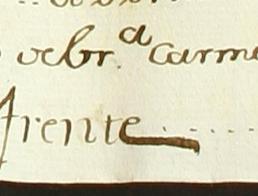 debr.ª Carme
frente.....